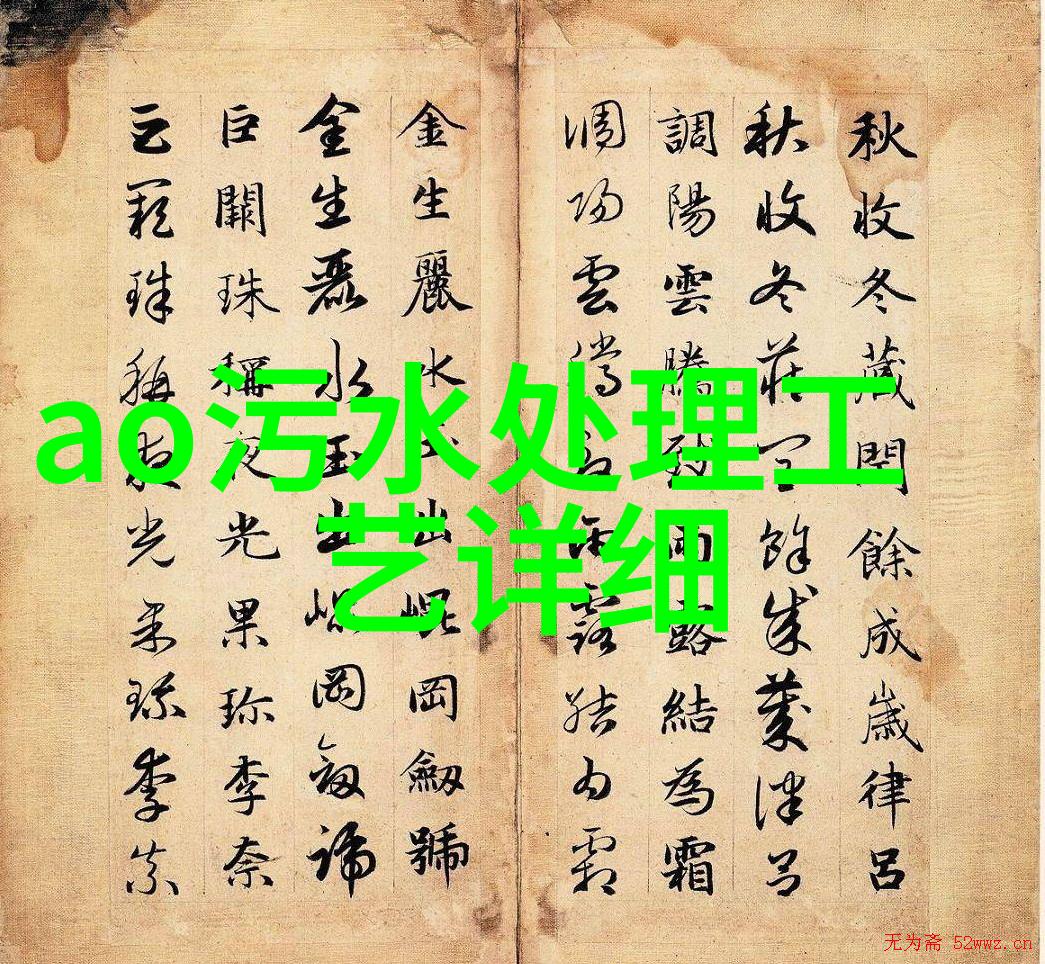 秋收冬藏閏餘成歲律呂
秋收冬藏閏餘成歲律呂
調陽雲騰致雨露結為霜
調陽雲騰致雨露結為霜
金生麗水玉出崐岡劒號
金生麗水玉出崐岡劒號
巨闕珠稱夜光果珍李柰
巨闕珠稱夜光果珍李柰
ao污水处理工
艺详细
无为斋 52wwz.cn